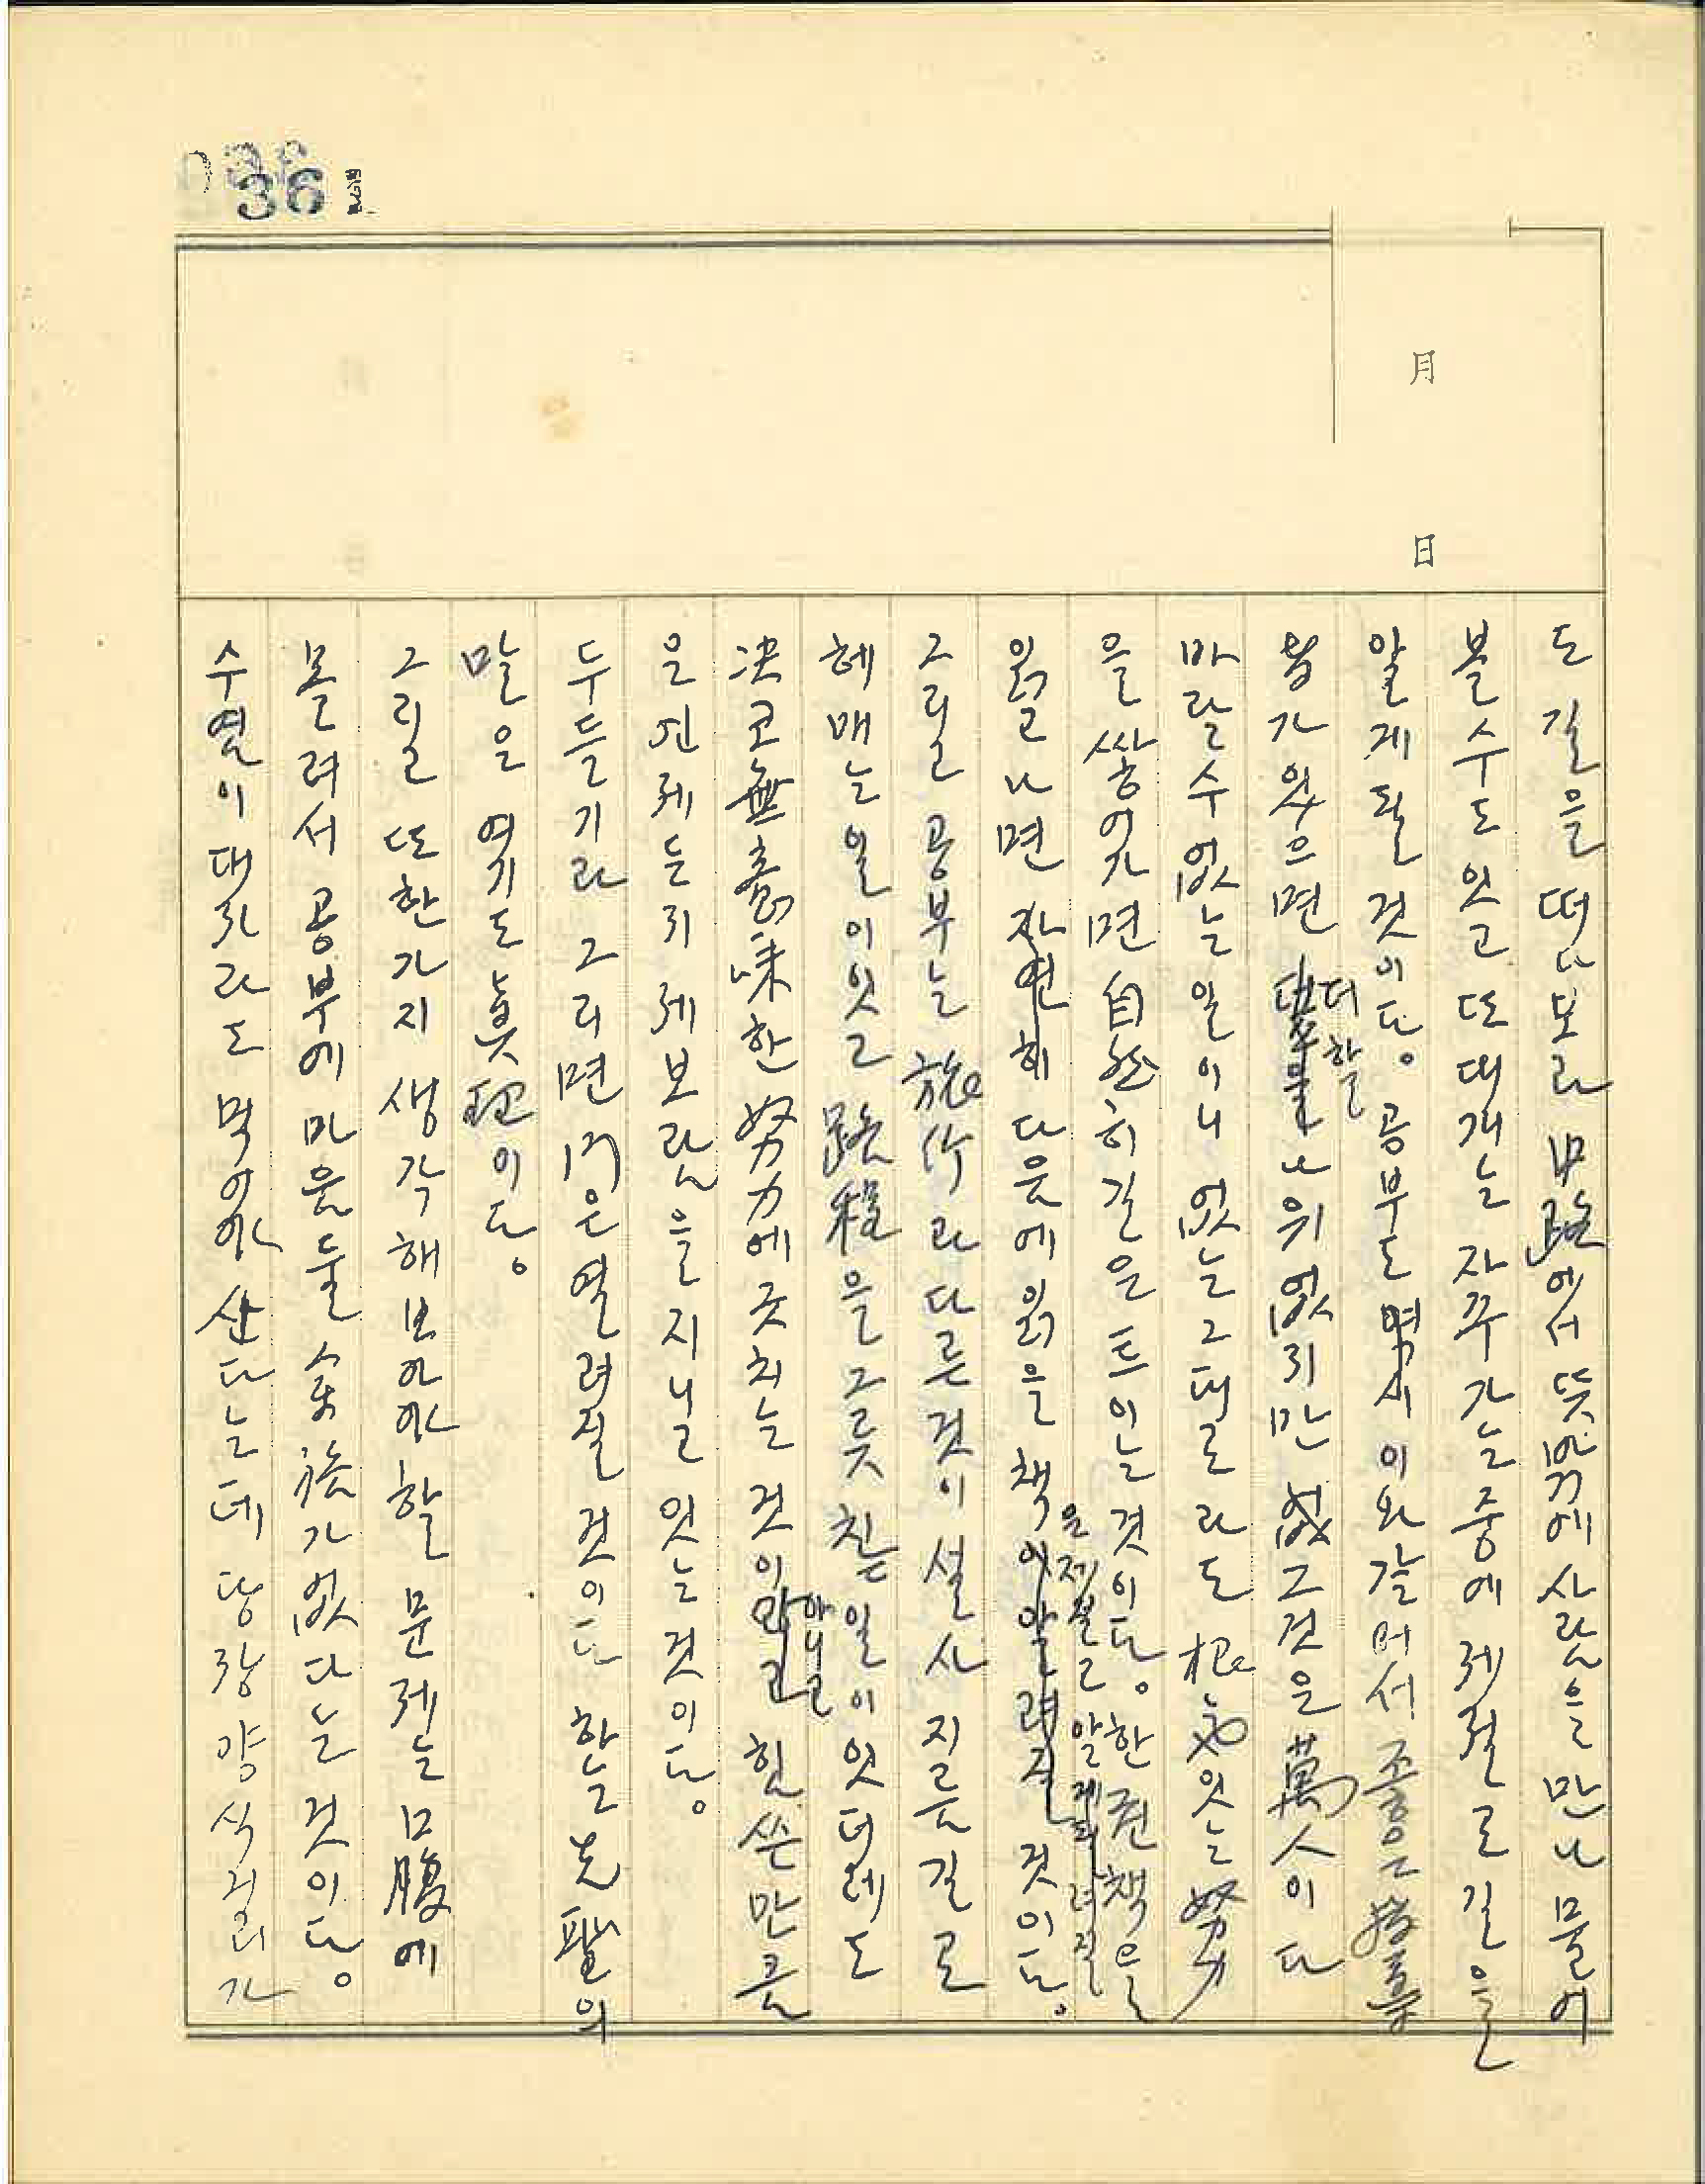 36
月 日
도 길을 떠나 보라 中路에서 뜻밖에 사람을 만나 물어
볼 수도 있고 또 대개는 자꾸 가는 중에 제절로 길을
알게 될 것이다。 공부도 역시 이와 같어서 좋은
가 있으면 더할 나위 없지만 그것은 萬人이 다
바랄 수 없는 일이니 없는 그대로라도 根氣있는 努力
을 쌓어가면 自然히 길은 트이는 것이다。 한 권 책을
읽고 나면 자연히 다음에 읽을 책은 제절로 알게 되려질 것이다。
그리고 공부는 旅行과 다른 것이 설사 지름길로
헤매는 일이 있고 路程을 그릇 친 일이 있더래도
决코 無意味한 努力에 긋치는 것이 아니고 힘쓴 만큼
은 언제든지 제 보람을 지니고 있는 것이다。
두들기라 그리면 门은 열려질 것이다 하는 先聖의
말은 여기도 眞理이다。
그리고 또 한가지 생각해 보아야 할 문제는 口腹에
몰려서 공부에 마음 둘 余裕가 없다는 것이다。
수염이 대자라도 먹어야 산다는데 당장 양식거리가